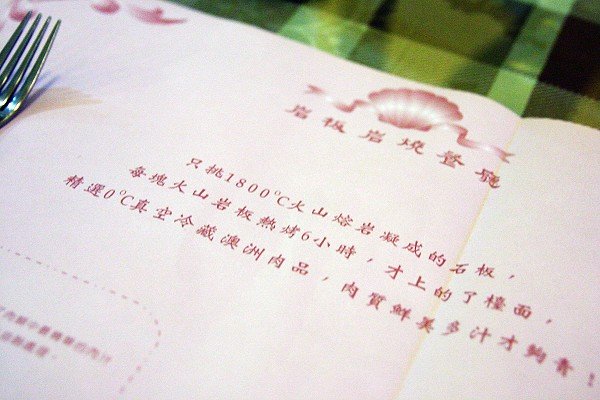 岩板岩燒餐廳
只挑1800°C火山熔岩凝成的石板，
每塊火山岩板熱烤6小時，才上的了檯面，
精選0°C真空冷藏澳洲肉品，肉質鮮美多汁才夠青！